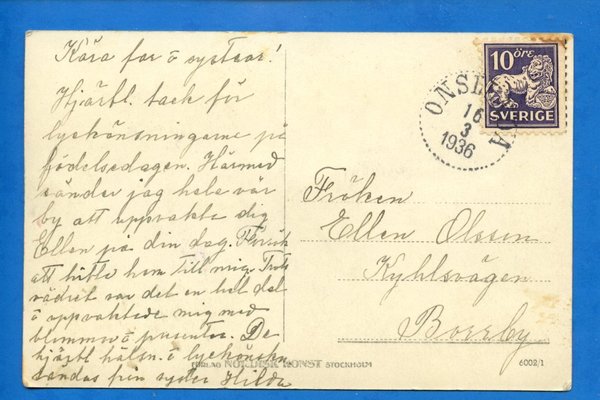 Kära far o systrar!
Hjärtl. tack för
lyckönskningarne på
födelsedagen. Härmed
sänder jag hela vår
by att uppvakta dig
Ellen på din dag. Försök
att hitta hem till mig. Trots
vädret var det en hel del
o uppvaktade mig med
blommor o presenter. De
hjärtl hälsn. o lyckönskn
sändas från syster Hilda
10 ÖRE
SVERIGE
16
3
1936
Fröken
Ellen Olsson
Kyhlsvägen
Borrby
FÖRLAG NORDISK KONST STOCKHOLM
6002/1